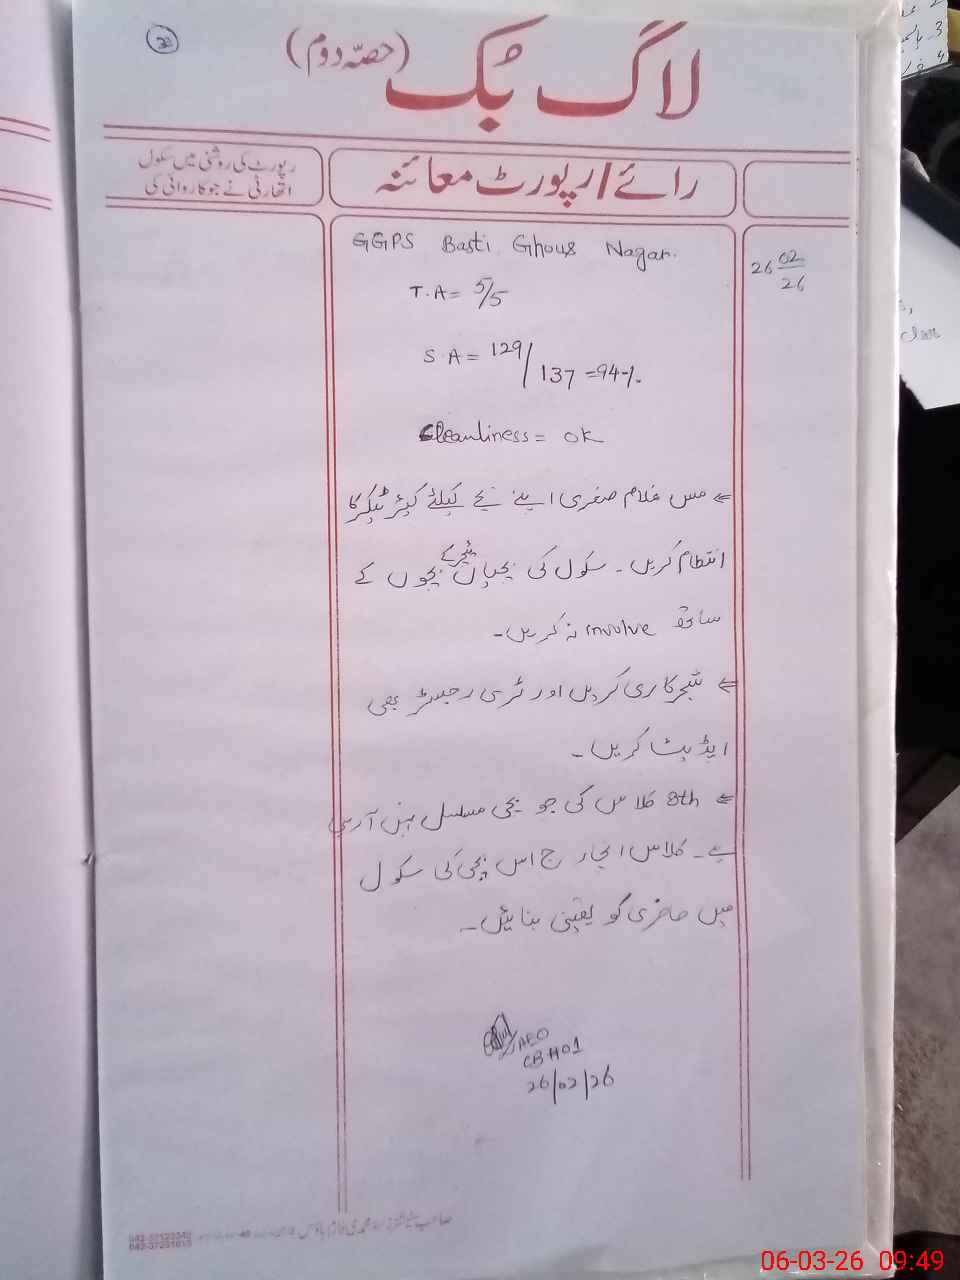 38
لاگ بُک (حصّہ دوم)
رائے/رپورٹ معائنہ
رپورٹ کی روشنی میں سکول
اتھارٹی نے جو کاروائی کی
26 02/26
GGPS Basti Ghous Nagar.
T.A = 5/5
S.A = 129/137 = 94%.
Cleanliness = ok
⇐ مس غلام صغری اپنے بچے کیلئے کیئر ٹیکر کا
انتظام کریں ۔ سکول کی بچیاں ٹیچر کے بچوں کے
ساتھ involve نہ کریں۔
⇐ شجرکاری کریں اور ٹری رجسٹر بھی
اپڈیٹ کریں۔
⇐ 8th کلاس کی جو بچی مسلسل نہیں آ رہی
ہے۔ کلاس انچارج اس بچی کی سکول
میں حاضری کو یقینی بنائیں۔
AEO
26/02/26
042-37123342
06-03-26 09:49